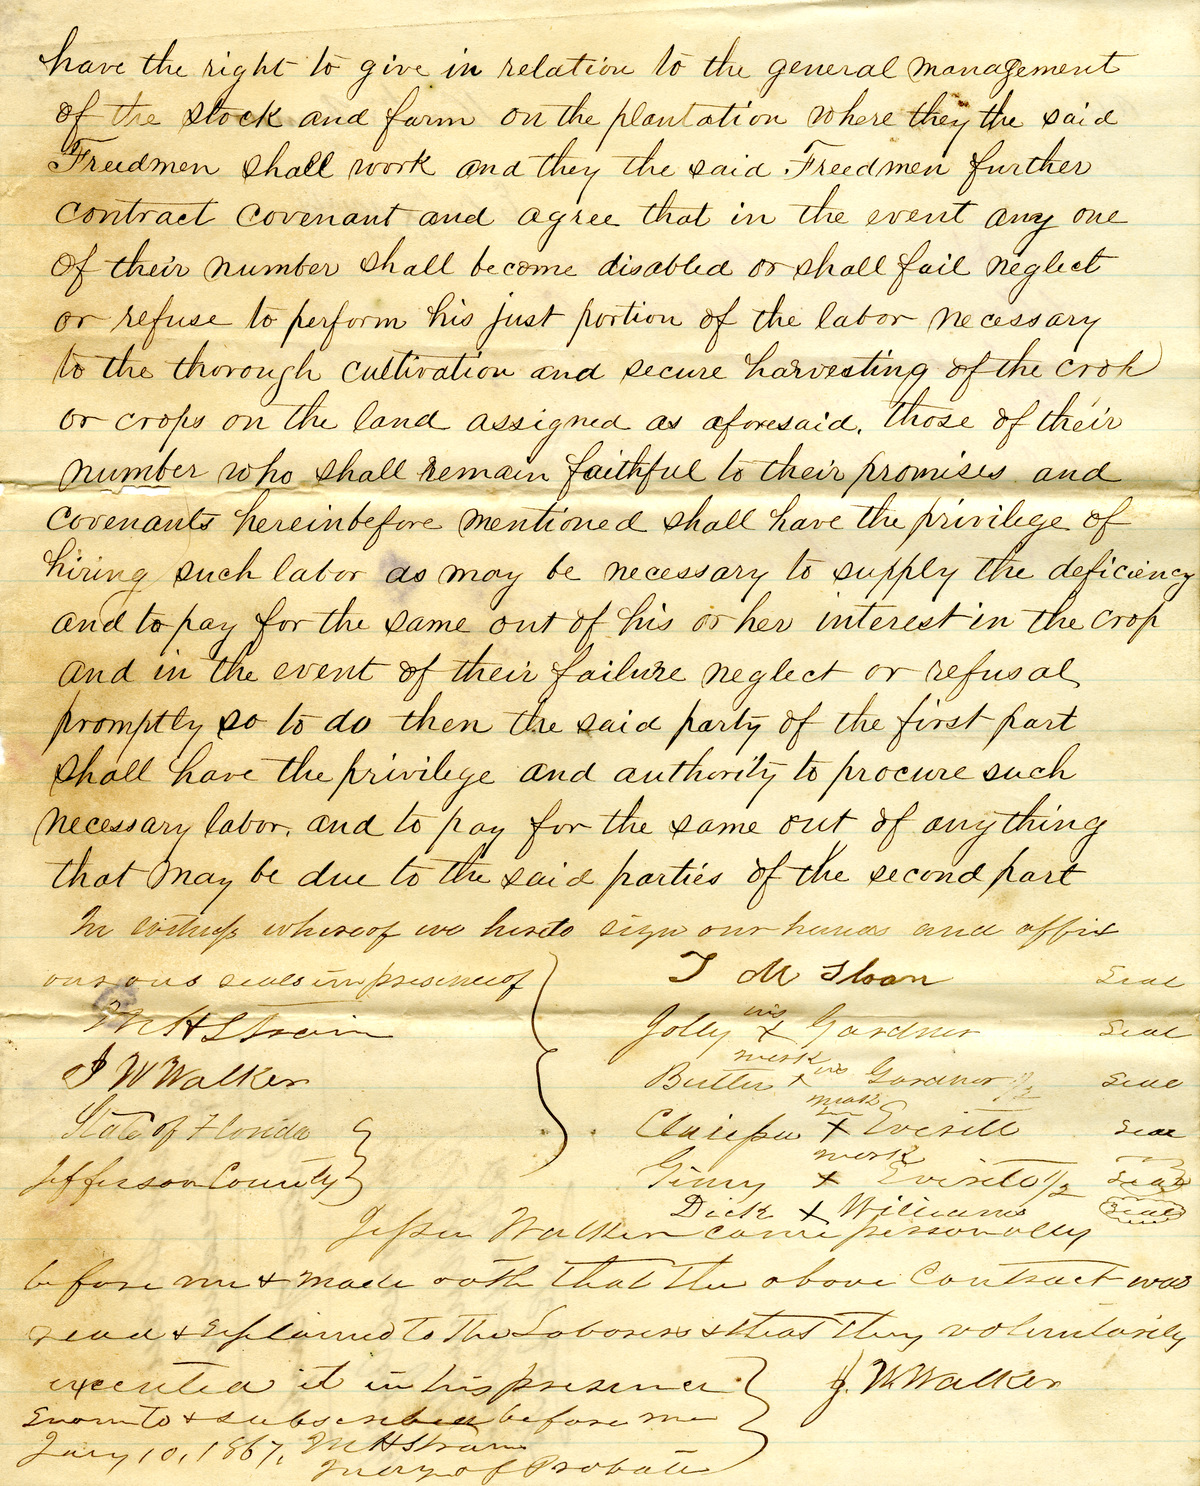 have the right to give in relation to the general management
of the stock and farm on the plantation where they the said
Freedmen shall work and they the said Freedmen further
contract covenant and agree that in the event any one
of their number shall become disabled or shall fail neglect
or refuse to perform his just portion of the labor necessary
to the thorough cultivation and secure harvesting of the crop
or crops on the land assigned as aforesaid, those of their
number who shall remain faithful to their promises and
covenants hereinbefore mentioned shall have the privilege of
hiring such labor as may be necessary to supply the deficiency
and to pay for the same out of his or her interest in the crop
and in the event of their failure neglect or refusal
promptly so to do then the said party of the first part
shall have the privilege and authority to procure such
necessary labor, and to pay for the same out of anything
that may be due to the said parties of the second part
In witness whereof we hereto sign our hands and affix
our seals in presence of
T M Sloan Seal
M H Strain
Jolly his x mark Gardner Seal
J W Walker
Butler his x mark Gardner 1/2 Seal
State of Florida
x Everitt Seal
Jefferson County
mark
x Everitt 1/2 Seal
Dick x Williams Seal
Jesse Walker came personally
before me & made oath that the above contract was
read & explained to the Laborers & that they voluntarily
executed it in his presence J. W Walker
Sworn to & subscribed before me
Jany 10, 1867, M H Strain
Judge of Probate